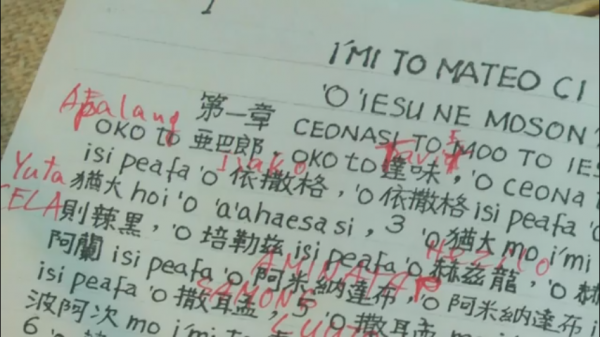 I
I'MI TO MATEO CI
'O 'IESU NE MOSON
Apalang 第一章 CEONASI TO MOO TO IES
OKO to 亜巴郎, OKO to 達味, 'O CEONA
isi peafa 'O 依撒格, 'O 依撒格 isi peafa 'O
Yuta 猶大 hoi 'O 'a'ahaesasi, 3 'O 猶大 mo i'mi
CELA 則辣黑, 'O 培勒兹 isi peafa 'O 赫兹龍, 'O 赫
阿蘭 isi peafa 'O 阿米納達布, 'O 阿米納達布
isi peafa 'O 撒耳孟, 5 'O 撒耳孟
波阿次 mo i'mi
6 'O
AMINATAP
SAMONG